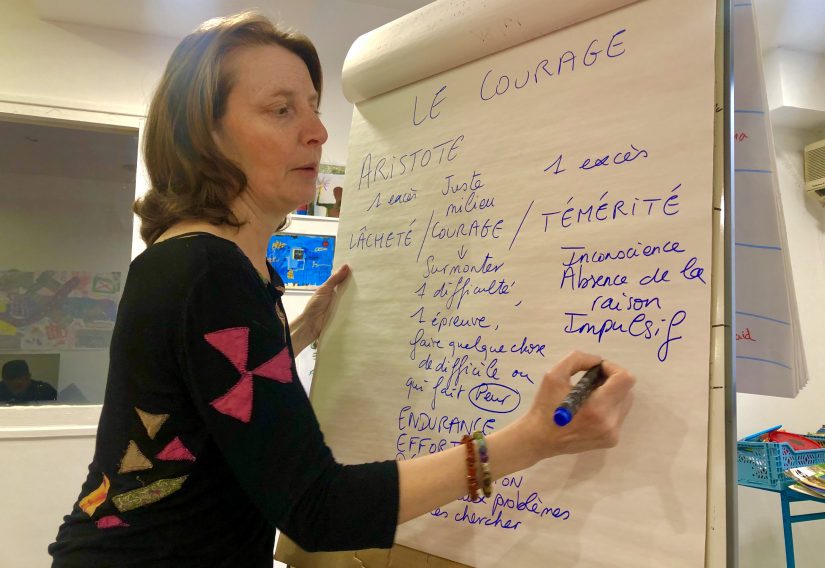 LE COURAGE
ARISTOTE
1 excès
Juste
milieu
1 excès
LÂCHETÉ / COURAGE / TÉMÉRITÉ
Surmonter
1 difficulté,
1 épreuve,
faire quelque chose
de difficile ou
qui fait Peur
ENDURANCE
EFFORT
problèmes
chercher
Inconscience
Absence de la
raison
Impulsif